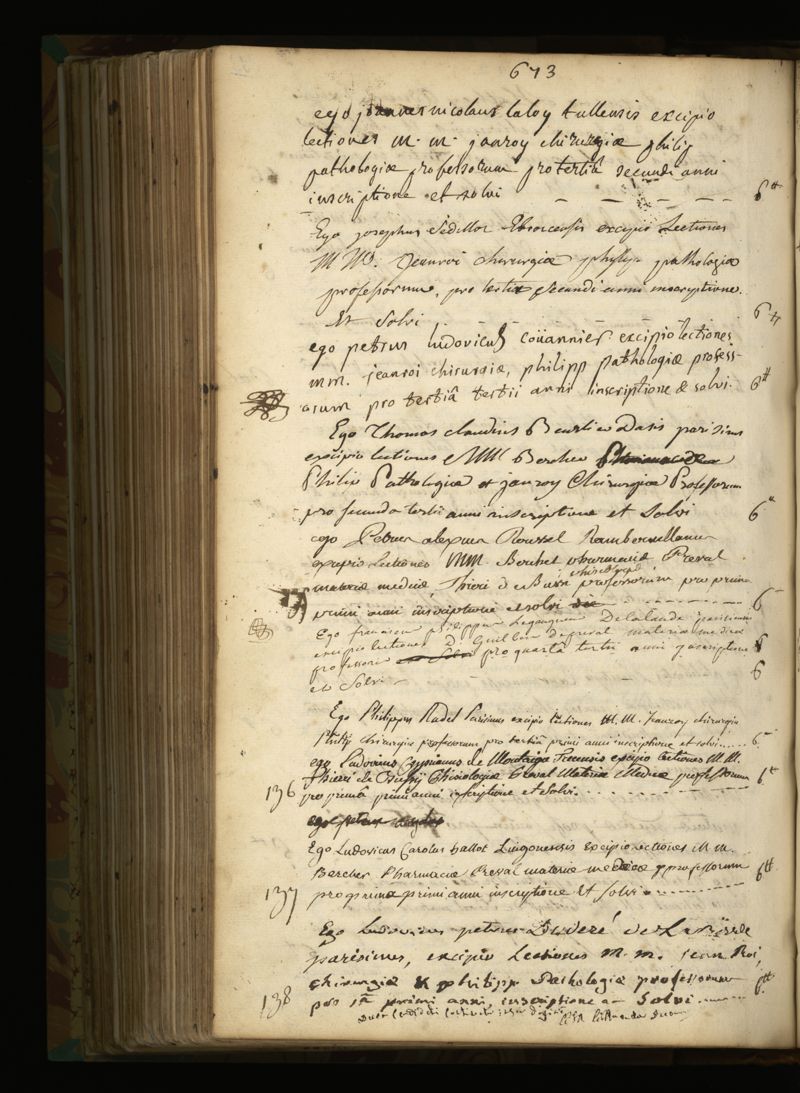 673
ego joannes nicolaus laloy tullensis excipio
lectiones m. m. janroy chirurgiæ philip
pathologiæ professorum pro tertiâ secundi anni
inscriptione et solvi 6#
Ego josephus Sedillot Ebroicensis excipio Lectiones
M M. Jeanroi chirurgiæ phylip pathologiæ
professorum, pro tertia secundi anni inscriptione.
Et Solvi 6#
ego petrus ludovicus coüannier excipio lectiones
mm. jeanroi chirurgiæ, philipp pathologiæ profess-
orum pro tertiâ tertii anni inscriptione & solvi. 6#
Ego Thomas claudius parisinus
excipio lectiones MM Bercher
Philip Pathologiæ et janroy Chirurgiæ Professorum
pro secunda tertii anni inscriptione et Solvi 6#
ego Petrus Roussel
excipio Lectiones MM. Berchet pharmaciæ Preval
materiæ medicæ, Thieri de Bussi chisiologiæ professorum pro prima
primi anni inscriptione et solvi 6
Ego franciscus philippus Delalande parisinus
excipio lectiones D. Guilbert de preval materiæ medicæ
professoris pro quarta tertii anni inscriptione 6
et Solvi 6
Ego Philippus Radel Parisinus excipio lectiones M. M. Jeanroy chirurgiæ
Philip chirurgiæ professorum pro tertiâ primi anni inscriptione et solvi 6
ego Ludovicus Cyprianus de Montaigu excipio lectiones M M.
Thieri de Bussy Chisiologiæ Preval Materiæ Medicæ professorum 6#
136 pro primâ primi anni inscriptione et Solvi.
ego petrus
Ego Ludovicus Carolus hallot Lingonensis Excipio Lectiones M m.
Bercher Pharmaciæ Preval materiæ medicæ professorum 6#
137 pro prima primi anni inscriptione Et Solvi
Ego Ludovicus petrus de La
parisinus, excipio Lectiones m. m. jean Roi,
chirurgiæ & philipp Pathologiæ professorum 6#
138 pro 1â primi anni, inscriptione et Solvi